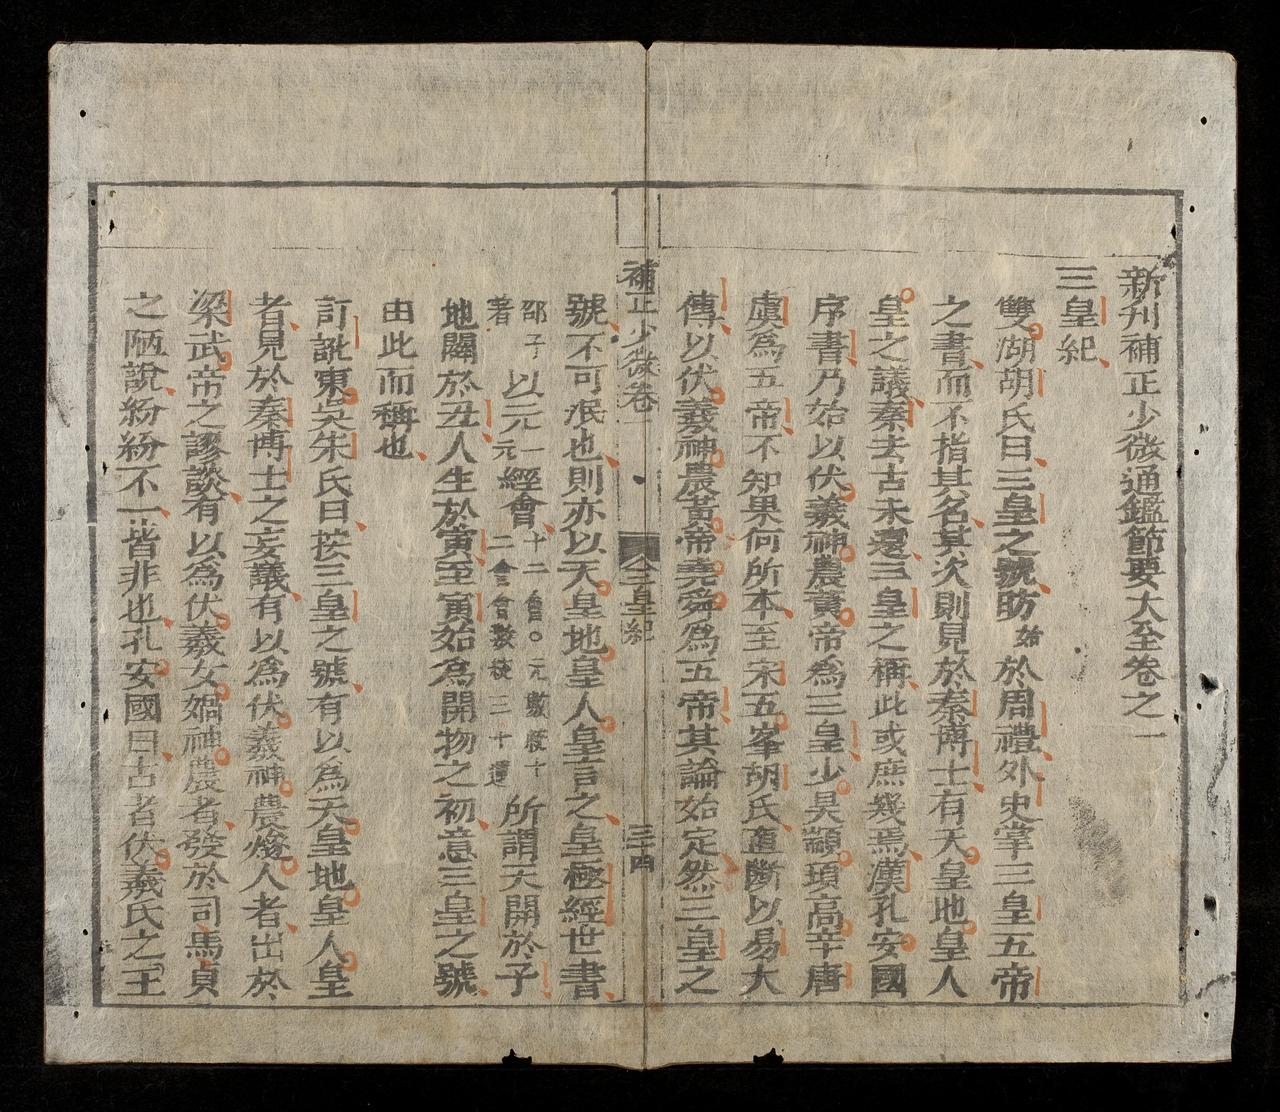 新刋補正少微通鑑節要大全卷之一
三皇紀
雙湖胡氏曰三皇之號昉始於周禮外史掌三皇五帝
之書而不指其名其次則見於秦博士有天皇地皇人
皇之議秦去古未遠三皇之稱此或庶幾焉漢孔安國
序書乃始以伏羲神農黃帝為三皇少昊顓頊高辛唐
虞為五帝不知果何所本至宋五峯胡氏直斷以易大
傳以伏羲神農黃帝堯舜為五帝其論始定然三皇之
補正少微卷一 三皇紀 三四
號不可泯也則亦以天皇地皇人皇言之皇極經世書
邵子著以元一元經會十二會○元數從十二會會數從三十運所謂天開於子
地闢於丑人生於寅至寅始為開物之初意三皇之號
由此而稱也
訂訛東吳朱氏曰按三皇之號有以為天皇地皇人皇
者見於秦博士之妄議有以為伏羲神農燧人者出於
梁武帝之謬談有以為伏羲女媧神農者發於司馬貞
之陋說紛紛不一皆非也孔安國曰古者伏羲氏之王